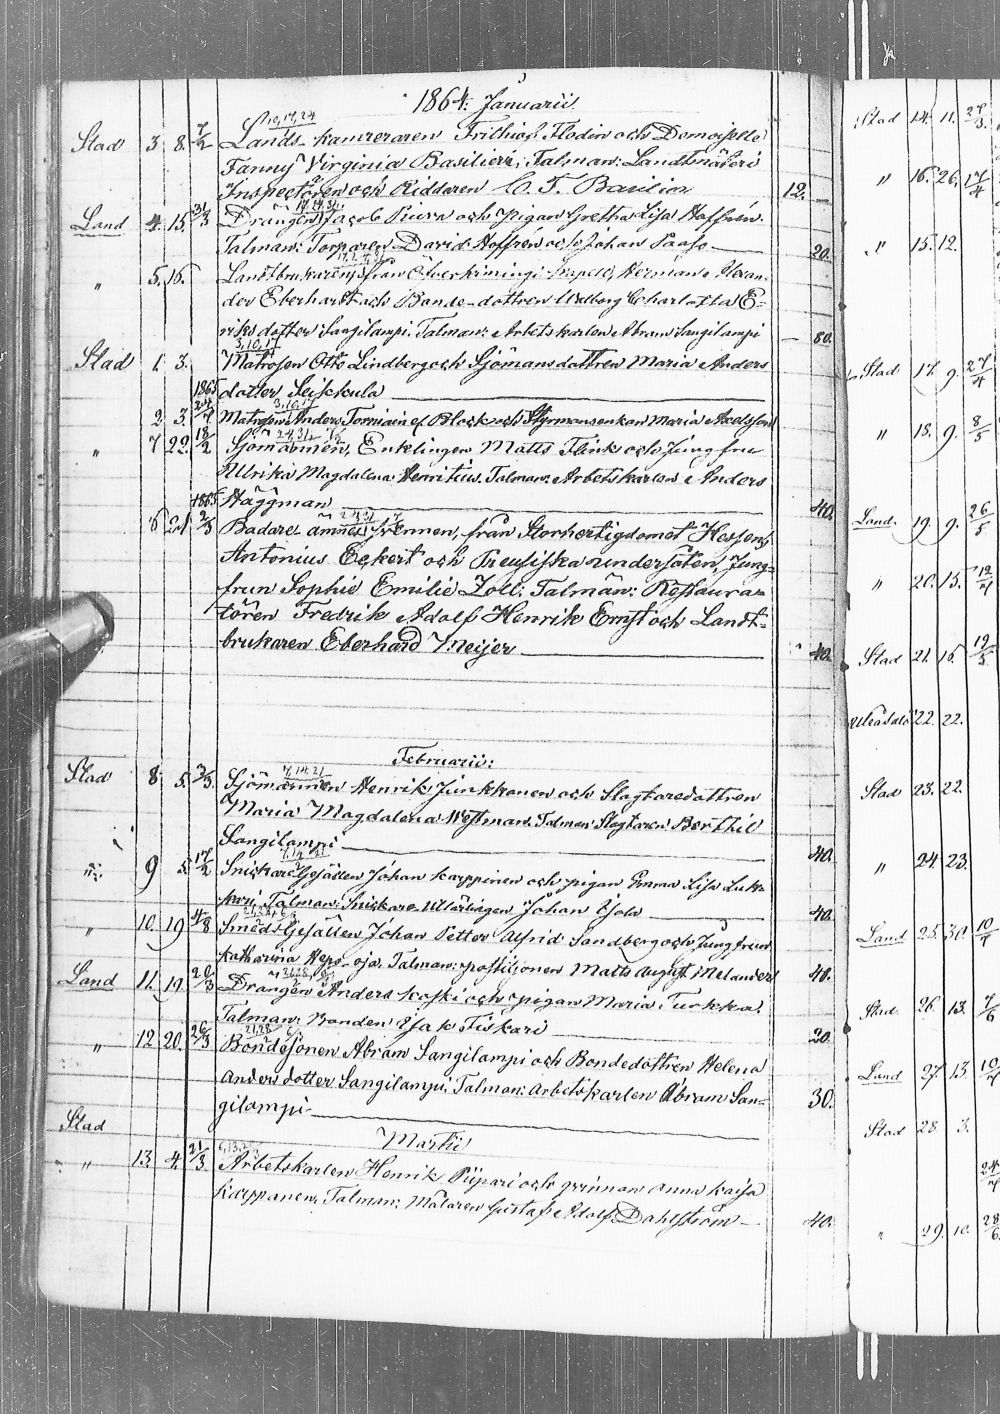 1864: Januarii
10, 17, 24
Stad 3. 8. 7/2 Lands-kamreraren Frithiof Flodin och Demoiselle
Fanny Virginia Basilieri; Talman: Landtmäteri
Inspectoren och Riddaren C. T. Basilier 12. —
Land 4. 15. 31/3 Drängen Jacob Piiera och pigan Gretha Lisa Hoffrén.
Talman: Torparen David Hoffrén och Johan Paaso 20.
" 5. 16. Landtbrukaren från Öfverkiimingi kapell, Herman Alexan-
der Eberhardt och Bonde-dottren Walborg Charlotta E-
riksdotter Sangilampi. Talman: Arbetskarlen Abram Sangilampi — 80.
3, 10, 17
Stad 1. 3. Matrosen Otto Lindberg och Sjömansdottren Maria Anders
1865 dotter Seikkula
2. 3. Matrosen Anders Torniainen Block och Styrmansenkan Maria Axelsson
" 7. 22. 18/2 Sjömannen, Enklingen Matts Flink och Jungfru
Ulrika Magdalena Henritius. Talman: Arbetskarlen Anders
1865 Häggman 40.
6. 24. 2/3 Badare-ämnes svennen, från Storhertigdömet Hessen,
Antonius Eckert och Preussiska undersåten, Jung-
frun Sophie Emilie Zoll; Talmän: Restaura-
tören Fredrik Adolf Henrik Ernst och Landt-
brukaren Eberhard Meijer 40.
Februarii:
7, 14, 21
Stad 8. 5. 3/3. Sjömannen Henrik Junkkonen och Slagtaredottren
Maria Magdalena Westman. Talman Slagtaren Berthil
Sangilampi 40.
7, 14, 21
" 9 5. 17/2 Snickare Gesällen Johan Karppinen och pigan Emma Lisa Luk-
kari. Talman: Snickare Johan 40.
" 10. 19 4/8 Smeds-Gesällen Johan Petter Alfrid Sandberg och Jungfrun
Katharina Hepo-oja. Talman: postiljonen Matts August Melander 40.
Land 11. 19. 20/3 Drängen Anders Koski och pigan Maria Turkka.
Talman: Bonden Isak Fiskari 20.
21, 28
" 12 20. 26/3 Bondesonen Abram Sangilampi och Bondedottren Helena
Andersdotter Sangilampi; Talman: Arbetskarlen Abram San-
gilampi 30.
Stad
Martii
" 13. 4. 21/3 Arbetskarlen Henrik Piipari och qvinnan Anna Kaisa
Karppanen, Talman: Målaren Gustaf Adolf Dahlström 40.
Stad 14. 11. 27/3.
" 16. 26. 17/4
" 15. 12.
Stad 17. 9. 27/4
" 18. 9. 8/5
Land. 19. 9. 26/5
" 20. 15. 12/4
Stad 21. 16. 19/5
Uleåsalo 22. 22.
Stad 23. 22.
" 24. 23.
Land 25. 30. 10/4
Stad. 26. 13. 7/6
Land 27. 13 10/4
Stad 28 3.
24/4
" 29. 10. 28/6